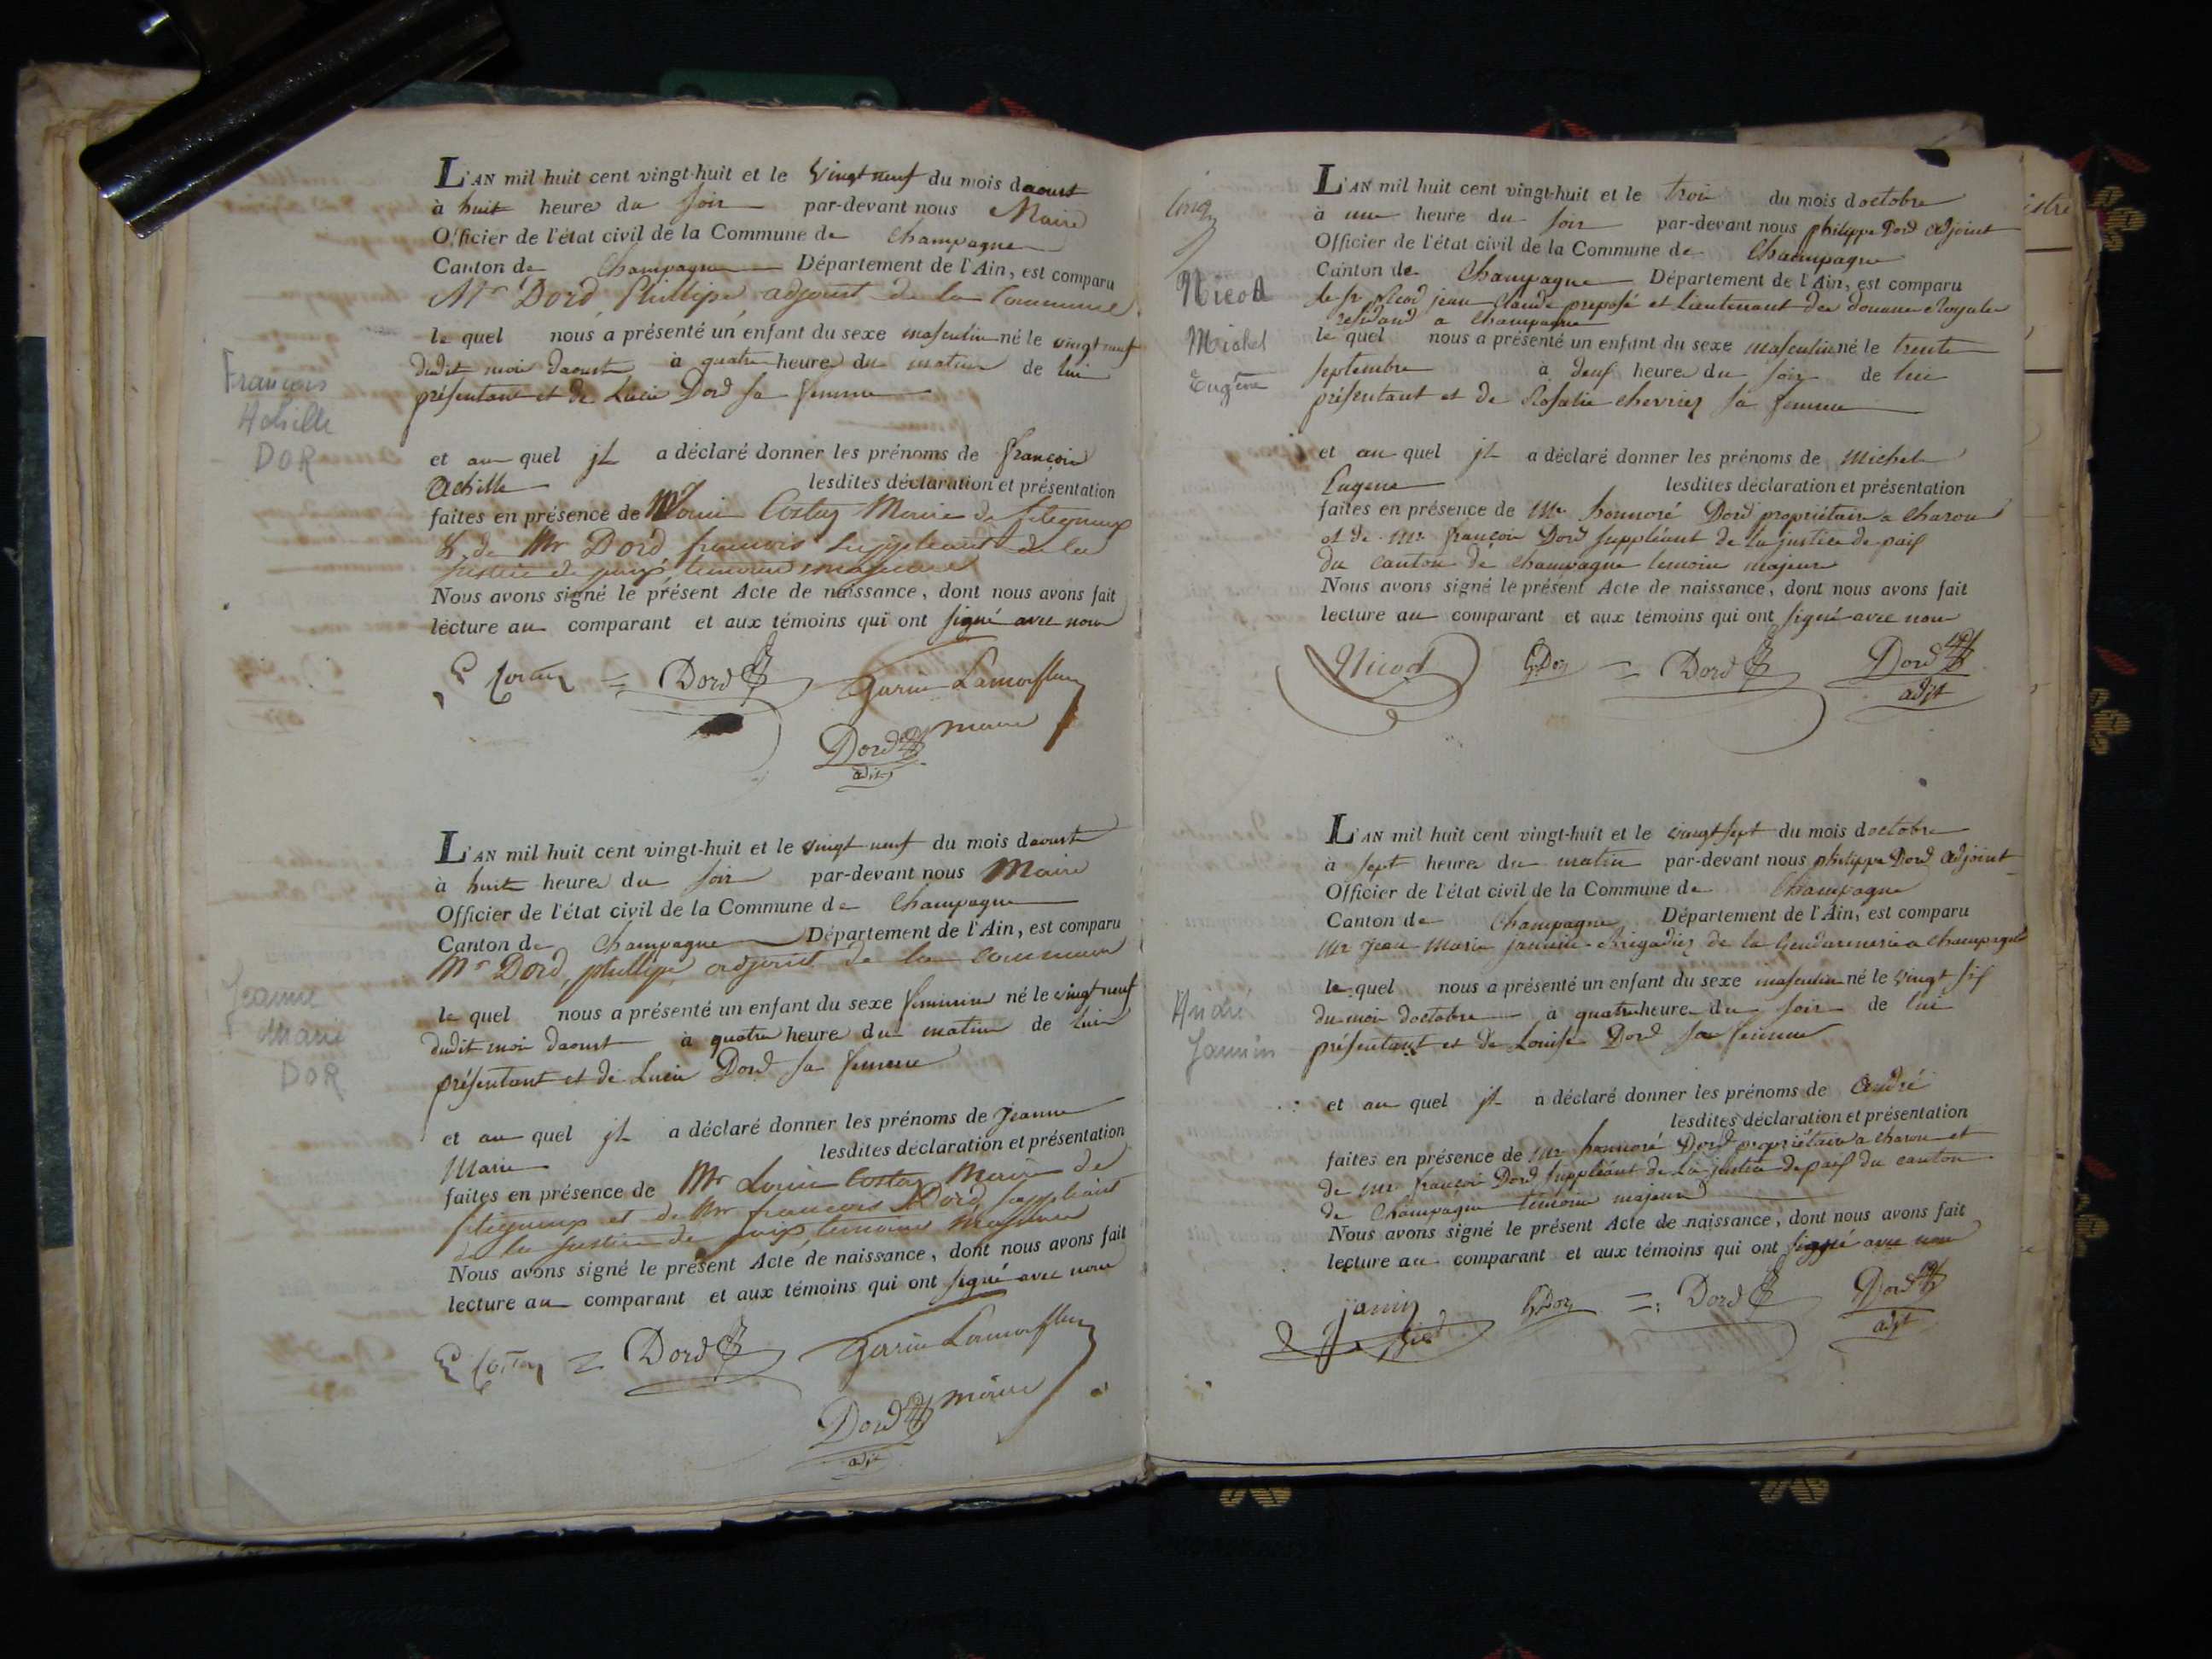 L'AN mil huit cent vingt-huit et le vingt neuf du mois daoust
à huit heures du soir par-devant nous Maire
Officier de l'état civil de la Commune de Champagne
Canton de Champagne Département de l'Ain, est comparu
Mr Dord, Phillipe, adjoint de la Commune
le quel nous a présenté un enfant du sexe masculin né le vingt neuf
dudit mois daoust à quatre heures du matin de lui
présentant et de Lucie Dord sa femme
François
Achille
DOR
et au quel il a déclaré donner les prénoms de françois
Achille lesdites déclaration et présentation
faites en présence de Mr Louis Costaz Maire de
& de Mr Dord, francois suppleant de la
justice de paix, temoins majeurs
Nous avons signé le présent Acte de naissance, dont nous avons fait
lecture au comparant et aux témoins qui ont signé avec nous
Costaz = Dord Garin Lamorflan
maire
Dord
adjt
L'AN mil huit cent vingt-huit et le vingt neuf du mois daoust
à huit heures du soir par-devant nous Maire
Officier de l'état civil de la Commune de Champagne
Canton de Champagne Département de l'Ain, est comparu
Mr Dord, phillipe, adjoint de la commune
le quel nous a présenté un enfant du sexe feminin né le vingt neuf
dudit mois daoust à quatre heures du matin de lui
présentant et de Lucie Dord sa femme
Jeanne
Marie
DOR
et au quel il a déclaré donner les prénoms de jeanne
Marie lesdites déclaration et présentation
faites en présence de Mr Louis Costaz Maire de
et de Mr francois Dord, suppleant
de la justice de paix, temoins majeurs
Nous avons signé le présent Acte de naissance, dont nous avons fait
lecture au comparant et aux témoins qui ont signé avec nous
Costaz = Dord Garin Lamorflan
maire
Dord
adjt
L'AN mil huit cent vingt-huit et le trois du mois doctobre
à une heure du soir par-devant nous philippe Dord adjoint
Officier de l'état civil de la Commune de Champagne
Canton de Champagne Département de l'Ain, est comparu
le sr Nicod jean Claude preposé et Lieutenant des douanes Royales
residand a Champagne
le quel nous a présenté un enfant du sexe masculin né le trente
septembre à deux heures du soir de lui
présentant et de Rosalie chevrier sa femme
Nicod
Michel
Eugène
et au quel il a déclaré donner les prénoms de Michel
Eugene lesdites déclaration et présentation
faites en présence de Mr honnoré Dord propriétaire a charon
et de mr françois Dord suppléant de la justice de paix
du canton de champagne temoins majeurs
Nous avons signé le présent Acte de naissance, dont nous avons fait
lecture au comparant et aux témoins qui ont signé avec nous
Nicod hDor = Dord Dord
adjt
L'AN mil huit cent vingt-huit et le vingt sept du mois doctobre
à sept heures du matin par-devant nous philippe Dord adjoint
Officier de l'état civil de la Commune de Champagne
Canton de Champagne Département de l'Ain, est comparu
mr jean marie jannin Brigadier de la Gendarmerie a champagne
le quel nous a présenté un enfant du sexe masculin né le vingt six
du mois doctobre à quatre heures du soir de lui
présentant et de Louise Dord sa femme
André
Jannin
et au quel il a déclaré donner les prénoms de André
lesdites déclaration et présentation
faites en présence de mr honnoré Dord propriétaire a charon et
de mr françois Dord suppléant de la justice de paix du canton
de Champagne temoins majeurs
Nous avons signé le présent Acte de naissance, dont nous avons fait
lecture au comparant et aux témoins qui ont signé avec nous
janin hDor = Dord Dord
adjt